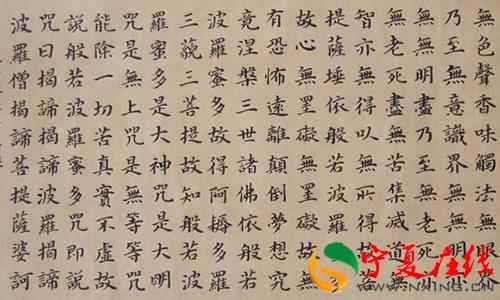 無色聲香味觸法無眼
乃至無意識界無無明
無無明盡乃至無老死
無老死盡無苦集滅道
智亦無得以無所得
提薩埵依般若波羅
故心無罣礙無罣礙故無
有恐怖遠離顛倒夢想究
竟涅槃三世諸佛依般若
波羅蜜多故得阿耨多羅
三藐三菩提故知般若波
羅蜜多是大神咒是大明
咒是無上咒是無等等咒
能除一切苦真實不虛故
說般若波羅蜜多咒即說
咒曰揭諦揭諦波羅揭諦
波羅僧揭諦菩提薩婆訶
宁夏在线
WWW.NXING.CN